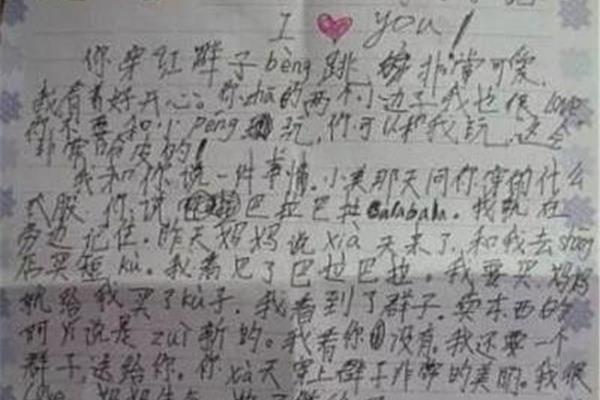 I ❤ you!
你穿红群子bèng跳 非常可爱,
我看着好开心。你zhā的两个小边子我也很love
你不要和小péng 玩,你可以和我玩,这会
非常 的!
我和你说一件事情。小美那天问你穿的什么
衣服 你说 巴拉巴拉balabala。我就在
旁边记住。昨天妈妈说xià天来了,和我去shāng
店买短kù。我看见了巴拉巴拉。我要买 妈妈
就给我买了kù子,我看到了群子,卖东西的
阿 说是zuì新的。我看你 没有。我还要一个
群子,送给你。你xià天穿上群子非常的美丽。我很
love 妈妈